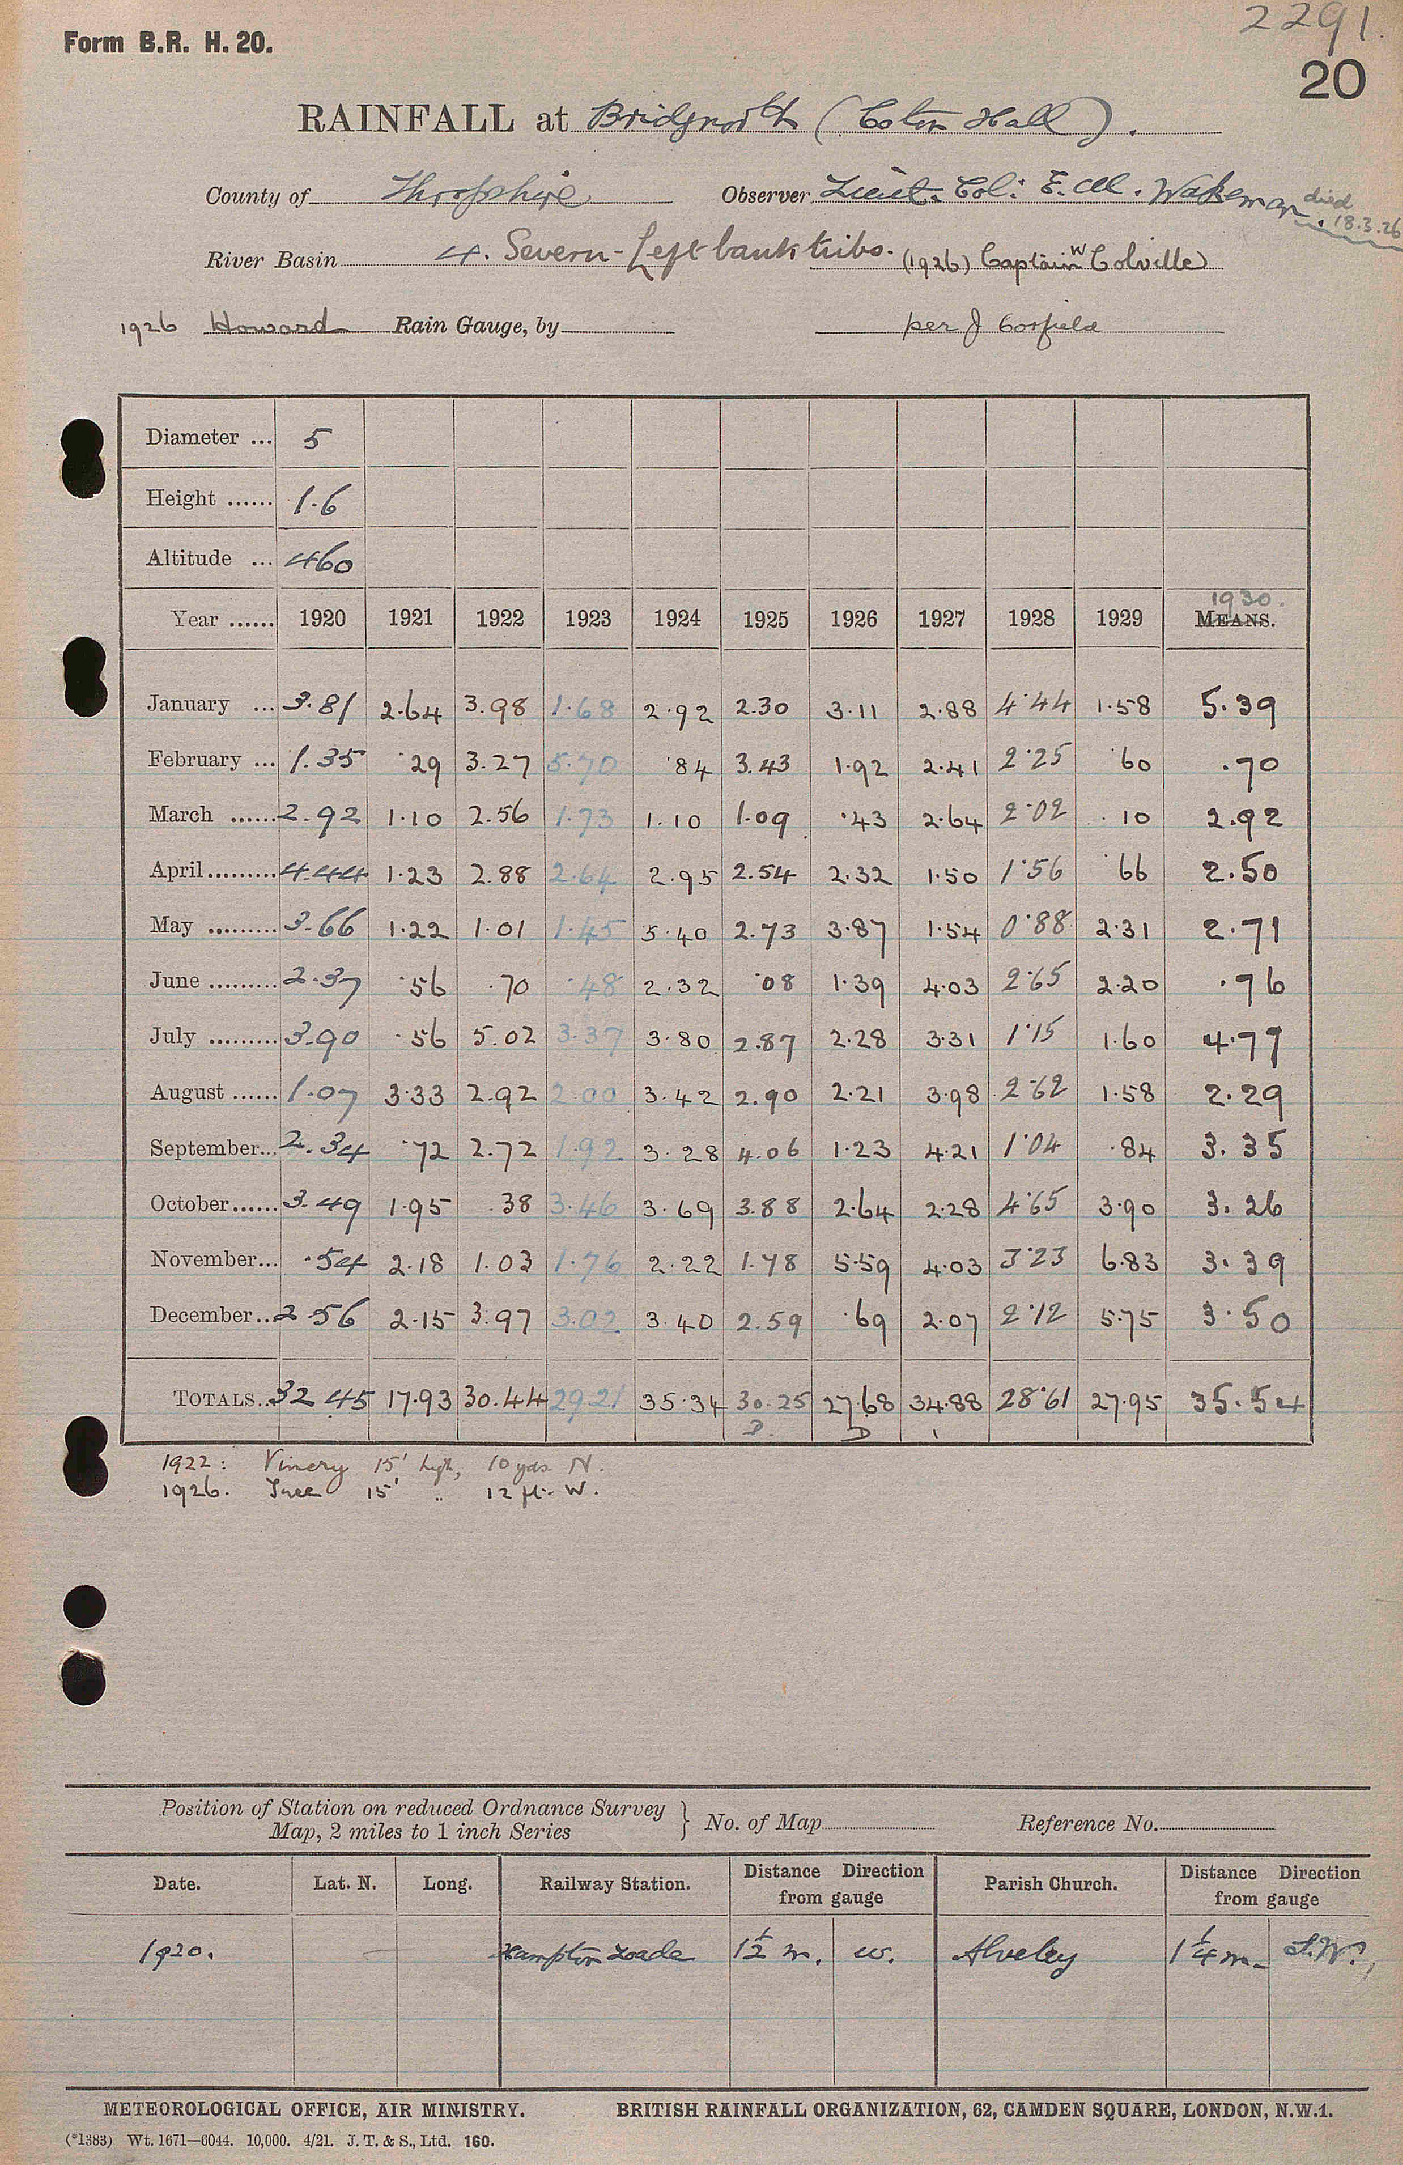 2291.
Form B.R. H. 20.
20
RAINFALL at Bridgnorth (Coton Hall).
County of Shropshire Observer Lieut. Col: E. Wakeman died 18.3.26
River Basin 4. Severn - Left bank tribs. (1926) Captain W Colville
1926 Howard Rain Gauge, by per J Corfield
Diameter ... 5
Height ...... 1.6
Altitude ... 460
1930.
Year ...... 1920 1921 1922 1923 1924 1925 1926 1927 1928 1929 MEANS.
January ... 3.81 2.64 3.98 1.68 2.92 2.30 3.11 2.88 4.44 1.58 5.39
February ... 1.35 .29 3.27 5.70 .84 3.43 1.92 2.41 2.25 .60 .70
March ...... 2.92 1.10 2.56 1.73 1.10 1.09 .43 2.64 2.02 .10 2.92
April......... 4.44 1.23 2.88 2.64 2.95 2.54 2.32 1.50 1.56 .66 2.50
May ......... 3.66 1.22 1.01 1.45 5.40 2.73 3.87 1.54 0.88 2.31 2.71
June ......... 2.37 .56 .70 .48 2.32 .08 1.39 4.03 2.65 2.20 .76
July ......... 3.90 .56 5.02 3.37 3.80 2.87 2.28 3.31 1.15 1.60 4.77
August ...... 1.07 3.33 2.92 2.00 3.42 2.90 2.21 3.98 2.62 1.58 2.29
September... 2.34 .72 2.72 1.92 3.28 4.06 1.23 4.21 1.04 .84 3.35
October...... 3.49 1.95 .38 3.46 3.69 3.88 2.64 2.28 4.65 3.90 3.26
November... .54 2.18 1.03 1.76 2.22 1.78 5.59 4.03 3.23 6.83 3.39
December.. 2.56 2.15 3.97 3.02 3.40 2.59 .69 2.07 2.12 5.75 3.50
TOTALS.. 32.45 17.93 30.44 29.21 35.34 30.25 27.68 34.88 28.61 27.95 35.54
1922: Vinery 15' high, 10 yds N.
1926. Tree 15' .. 12 ft. W.
Position of Station on reduced Ordnance Survey
Map, 2 miles to 1 inch Series } No. of Map Reference No.
Date. Lat. N. Long. Railway Station. Distance Direction from gauge Parish Church. Distance Direction from gauge
1920. Hampton Loade 1½ m. W. Alveley 1¼ m. S.W.
METEOROLOGICAL OFFICE, AIR MINISTRY. BRITISH RAINFALL ORGANIZATION, 62, CAMDEN SQUARE, LONDON, N.W.1.
(*1383) Wt. 1671—6044. 10,000. 4/21. J. T. & S., Ltd. 160.